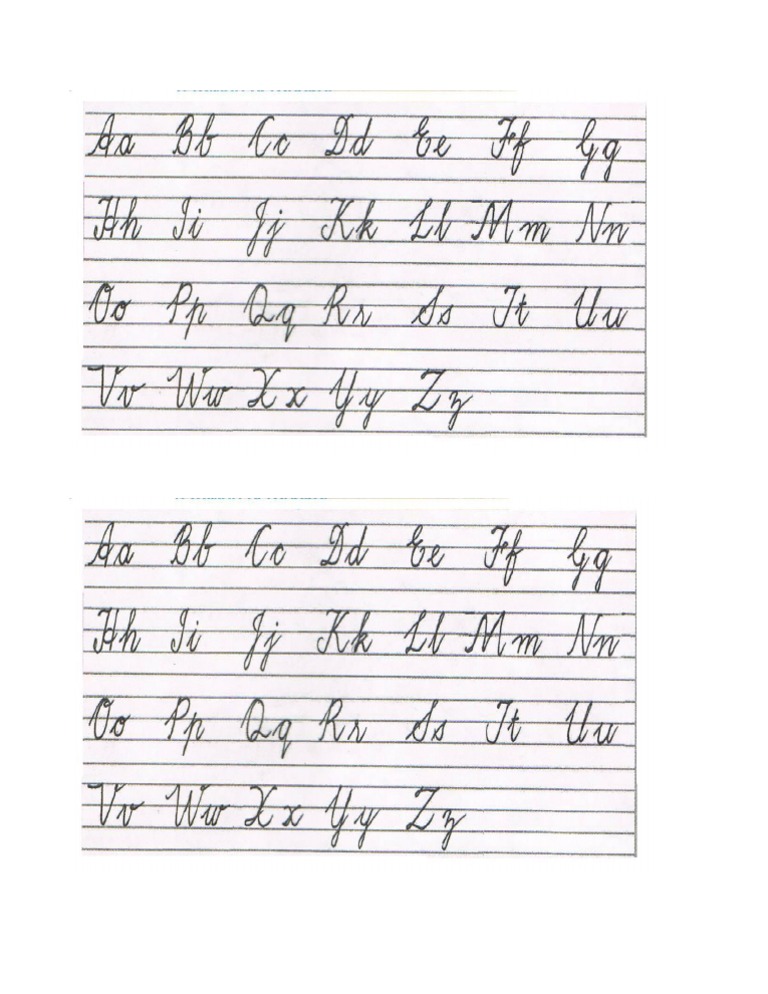 Aa Bb Cc Dd Ee Ff Gg
Hh Ii Jj Kk Ll Mm Nn
Oo Pp Qq Rr Ss Tt Uu
Vv Ww Xx Yy Zz
Aa Bb Cc Dd Ee Ff Gg
Hh Ii Jj Kk Ll Mm Nn
Oo Pp Qq Rr Ss Tt Uu
Vv Ww Xx Yy Zz